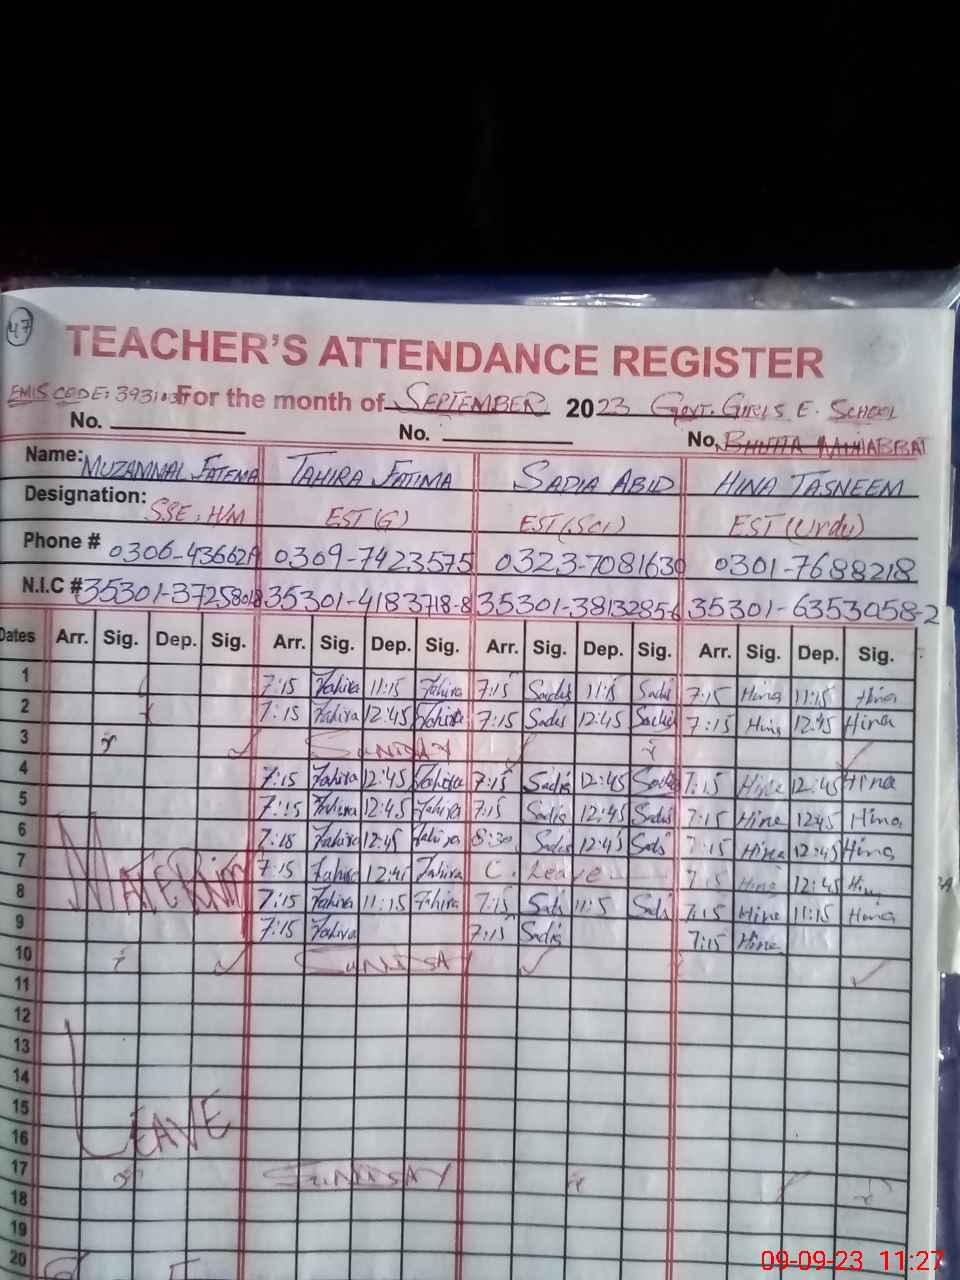 47
TEACHER'S ATTENDANCE REGISTER
EMIS CODE: For the month of SEPTEMBER 2023 GOVT. GIRLS E. SCHOOL
No. No. No.
Name: MUZAMMAL FATEMA TAHIRA FATIMA SADIA ABID HINA TASNEEM
Designation: SSE, H/M EST (G) EST (Sci) EST (Urdu)
Phone # 0306-436621 0309-7423575 0323-7081630 0301-7688218
N.I.C # 35301-4183718-8 35301-3813285-6 35301-6353058-2
Dates Arr. Sig. Dep. Sig. Arr. Sig. Dep. Sig. Arr. Sig. Dep. Sig. Arr. Sig. Dep. Sig.
1 7:15 Tahira 11:15 Tahira 7:15 Sadia 11:15 Sadia 7:15 Hina 11:15 Hina
2 7:15 Tahira 12:45 Tahira 7:15 Sadia 12:45 Sadia 7:15 Hina 12:45 Hina
3 SUNDAY
4 7:15 Tahira 12:45 Tahira 7:15 Sadia 12:45 Sadia 7:15 Hina 12:45 Hina
5 7:15 Tahira 12:45 Tahira 7:15 Sadia 12:45 Sadia 7:15 Hina 12:45 Hina
6 7:18 Tahira 12:45 Tahira 8:30 Sadia 12:45 Sadia 7:15 Hina 12:45 Hina
7 MATERNITY 7:15 Tahira 12:45 Tahira C. Leave 7:15 Hina 12:45 Hina
8 7:15 Tahira 11:15 Tahira 7:15 Sadia 11:15 Sadia 7:15 Hina 11:15 Hina
9 7:15 Tahira 7:15 Sadia 7:15 Hina
10 SUNDAY
11
12
13
14
15
16 LEAVE
17 SUNDAY
18
19
20
09-09-23 11:27